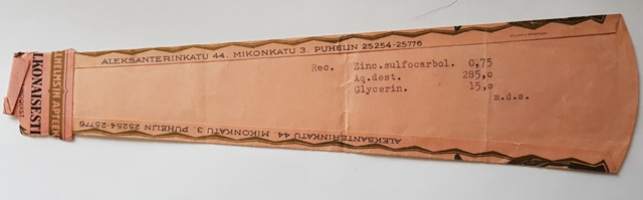 ALEKSANTERINKATU 44. MIKONKATU 3. PUHELIN 25254-25776
Rec. Zinc.sulfocarbol. 0,75
Aq.dest. 285,0
Glycerin. 15,0
m.d.s.
ALEKSANTERINKATU 44. MIKONKATU 3. PUHELIN 25254-25776
LKONAISESTI